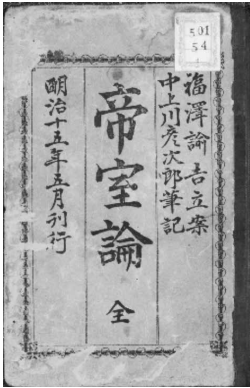 501
54
福澤諭吉立案
中上川彦次郎筆記
帝室論 全
明治十五年五月刊行